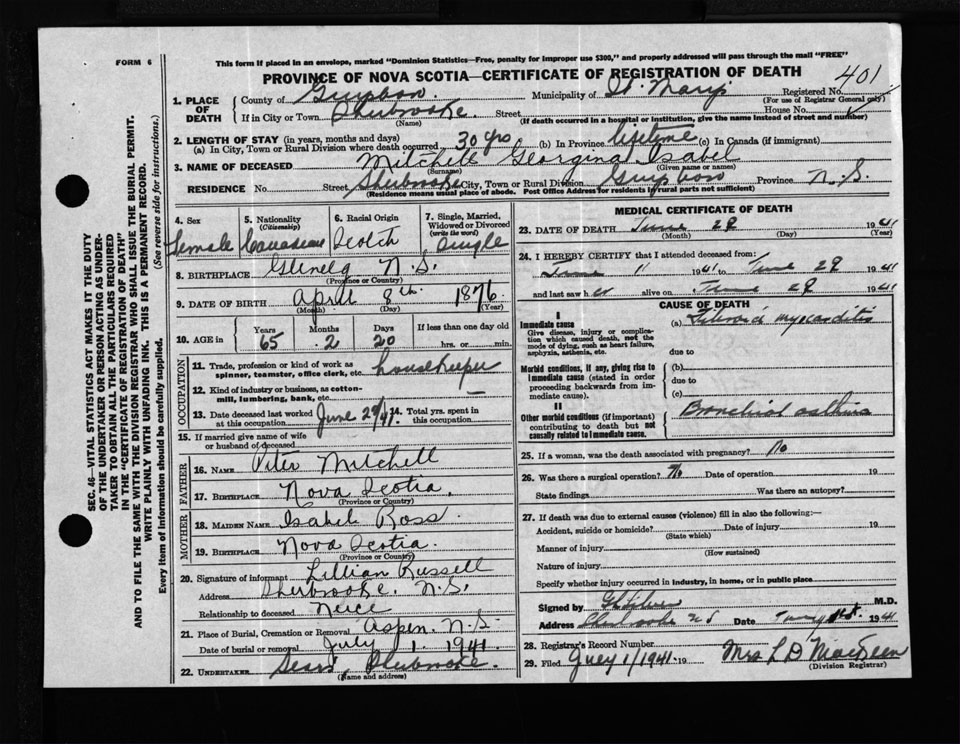 FORM 6
This form if placed in an envelope, marked "Dominion Statistics—Free, penalty for improper use $300," and properly addressed will pass through the mail "FREE"
PROVINCE OF NOVA SCOTIA—CERTIFICATE OF REGISTRATION OF DEATH 401
1. PLACE OF DEATH County of Guysboro. Municipality of St. Mary's Registered No.
(For use of Registrar General only)
If in City or Town Sherbrooke Street House No.
(Name) (If death occurred in a hospital or institution, give the name instead of street and number)
2. LENGTH OF STAY (in years, months and days)
(a) In City, Town or Rural Division where death occurred 30 yrs (b) In Province lifetime (c) In Canada (if immigrant)
3. NAME OF DECEASED Mitchell Georgina Isabel
(Surname) (Given name or names)
RESIDENCE No. Street Sherbrooke City, Town or Rural Division Guysboro Province N.S.
(Residence means usual place of abode. Post Office Address for residents in rural parts not sufficient)
SEC. 46—VITAL STATISTICS ACT MAKES IT THE DUTY
OF THE UNDERTAKER OR PERSON ACTING AS UNDER-
TAKER TO OBTAIN ALL THE PARTICULARS REQUIRED
IN THE "CERTIFICATE OF REGISTRATION OF DEATH"
AND TO FILE THE SAME WITH THE DIVISION REGISTRAR WHO SHALL ISSUE THE BURIAL PERMIT.
WRITE PLAINLY WITH UNFADING INK. THIS IS A PERMANENT RECORD.
Every item of Information should be carefully supplied. (See reverse side for instructions.)
4. Sex
Female
5. Nationality
(Citizenship)
Canadian
6. Racial Origin
Scotch
7. Single, Married,
Widowed or Divorced
(write the word)
Single
8. BIRTHPLACE Glenelg N.S.
(Province or Country)
9. DATE OF BIRTH April 8th. 1876.
(Month) (Day) (Year)
10. AGE in
Years Months Days If less than one day old
65 2 20 hrs. or min.
OCCUPATION
11. Trade, profession or kind of work as
spinner, teamster, office clerk, etc. housekeeper
12. Kind of industry or business, as cotton-
mill, lumbering, bank, etc. —
13. Date deceased last worked
at this occupation June 29/41.
14. Total yrs. spent in
this occupation
15. If married give name of wife
or husband of deceased
FATHER
16. NAME Peter Mitchell
17. BIRTHPLACE Nova Scotia.
(Province or Country)
MOTHER
18. MAIDEN NAME Isabel Ross
19. BIRTHPLACE Nova Scotia.
(Province or Country)
20. Signature of informant Lillian Russell
Address Sherbrooke. N.S.
Relationship to deceased Neice
21. Place of Burial, Cremation or Removal Aspen, N.S.
Date of burial or removal July 1. 1941.
22. UNDERTAKER Sears, Sherbrooke.
(Name and address)
MEDICAL CERTIFICATE OF DEATH
23. DATE OF DEATH June 29 1941
(Month) (Day) (Year)
24. I HEREBY CERTIFY that I attended deceased from:
June 11 1941 to June 29 1941
and last saw her alive on June 29 1941
CAUSE OF DEATH
I
Immediate cause
(a) Fibroid myocarditis
Give disease, injury or complica-
tion which caused death, not the
mode of dying, such as heart failure,
asphyxia, asthenia, etc.
due to
Morbid conditions, if any, giving rise to
immediate cause (stated in order
proceeding backwards from im-
mediate cause).
(b)
due to
(c)
II
Other morbid conditions (if important)
contributing to death but not
causally related to immediate cause.
Bronchial asthma
25. If a woman, was the death associated with pregnancy? No
26. Was there a surgical operation? No Date of operation 19
State findings Was there an autopsy?
27. If death was due to external causes (violence) fill in also the following:—
Accident, suicide or homicide? Date of injury 19
(State which)
Manner of injury
(How sustained)
Nature of injury
Specify whether injury occurred in industry, in home, or in public place
Signed by M.D.
Address Sherbrooke NS Date 1941
28. Registrar's Record Number
29. Filed July 1/1941. 19 Mrs L.D. MacKeen
(Division Registrar)